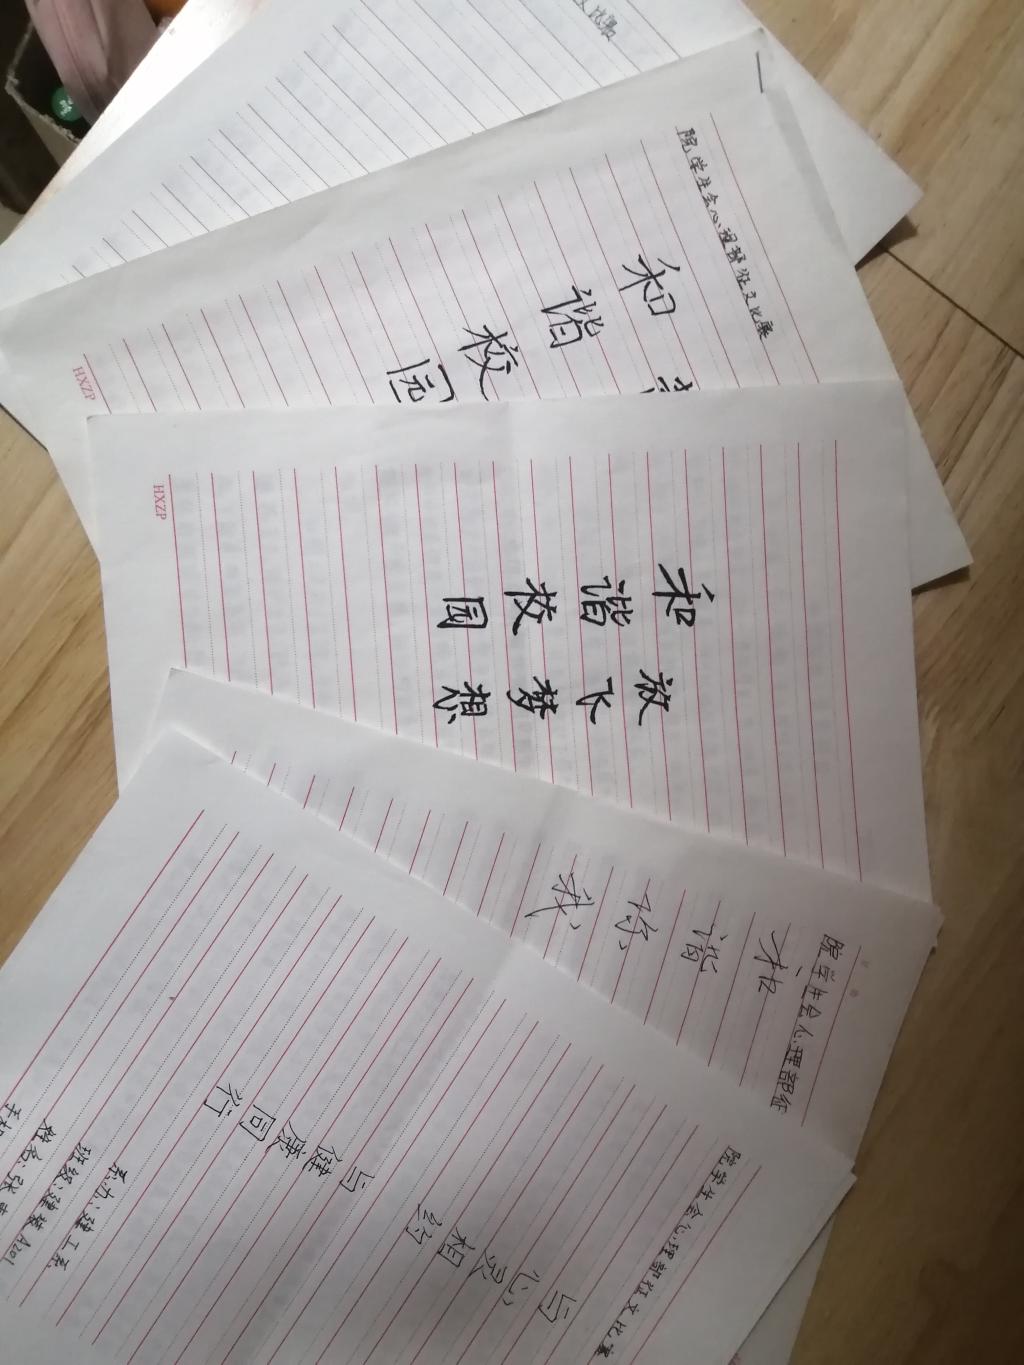 文比赛
院学生会心理部征文比赛
和谐校园
HXZP
和谐校园
放飞梦想
HXZP
院学生会心理部征
和谐你我
院学生会心理部征文比赛
与心灵相约
与健康同行
系办:建工系
班级:建装A1201
姓名:张
手机